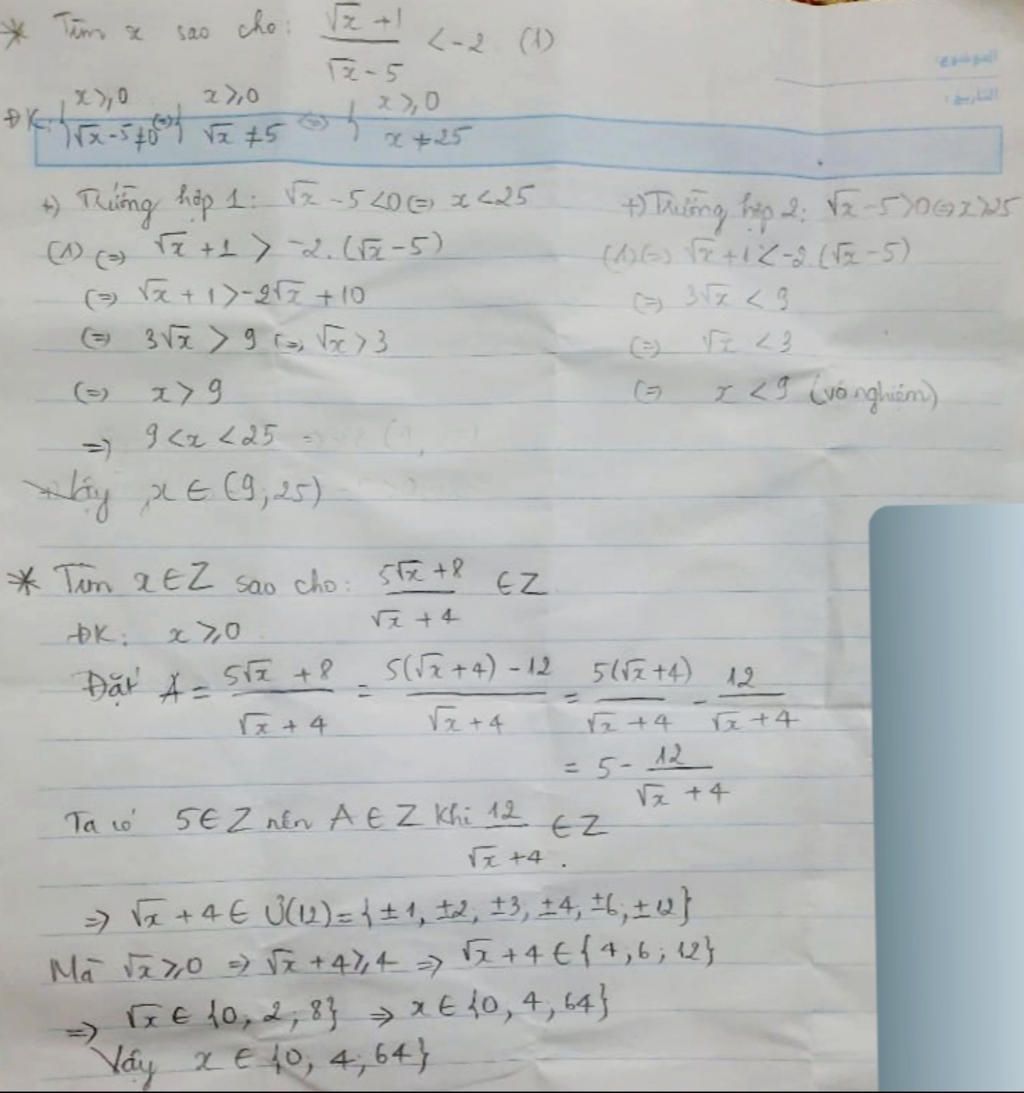 * Tìm x sao cho: (√x + 1)/(√x - 5) < -2 (1)
الموضوع:
التاريخ:
ĐK: { x ≥ 0, √x - 5 ≠ 0 (=) { x ≥ 0, √x ≠ 5 (=) { x ≥ 0, x ≠ 25
+) Trường hợp 1: √x - 5 < 0 (=) x < 25
(1) (=) √x + 1 > -2.(√x - 5)
(=) √x + 1 > -2√x + 10
(=) 3√x > 9 (=) √x > 3
(=) x > 9
=) 9 < x < 25
+) Trường hợp 2: √x - 5 > 0 (=) x > 25
(1) (=) √x + 1 < -2.(√x - 5)
(=) 3√x < 9
(=) √x < 3
(=) x < 9 (vô nghiệm)
Vậy x ∈ (9, 25)
* Tìm x ∈ Z sao cho: (5√x + 8)/(√x + 4) ∈ Z
ĐK: x ≥ 0
Đặt A = (5√x + 8)/(√x + 4) = (5(√x + 4) - 12)/(√x + 4) = 5(√x + 4)/(√x + 4) - 12/(√x + 4)
= 5 - 12/(√x + 4)
Ta có 5 ∈ Z nên A ∈ Z khi 12/(√x + 4) ∈ Z
=> √x + 4 ∈ Ư(12) = {±1, ±2, ±3, ±4, ±6, ±12}
Mà √x ≥ 0 => √x + 4 ≥ 4 => √x + 4 ∈ {4; 6; 12}
=> √x ∈ {0, 2, 8} => x ∈ {0, 4, 64}
Vậy x ∈ {0, 4, 64}